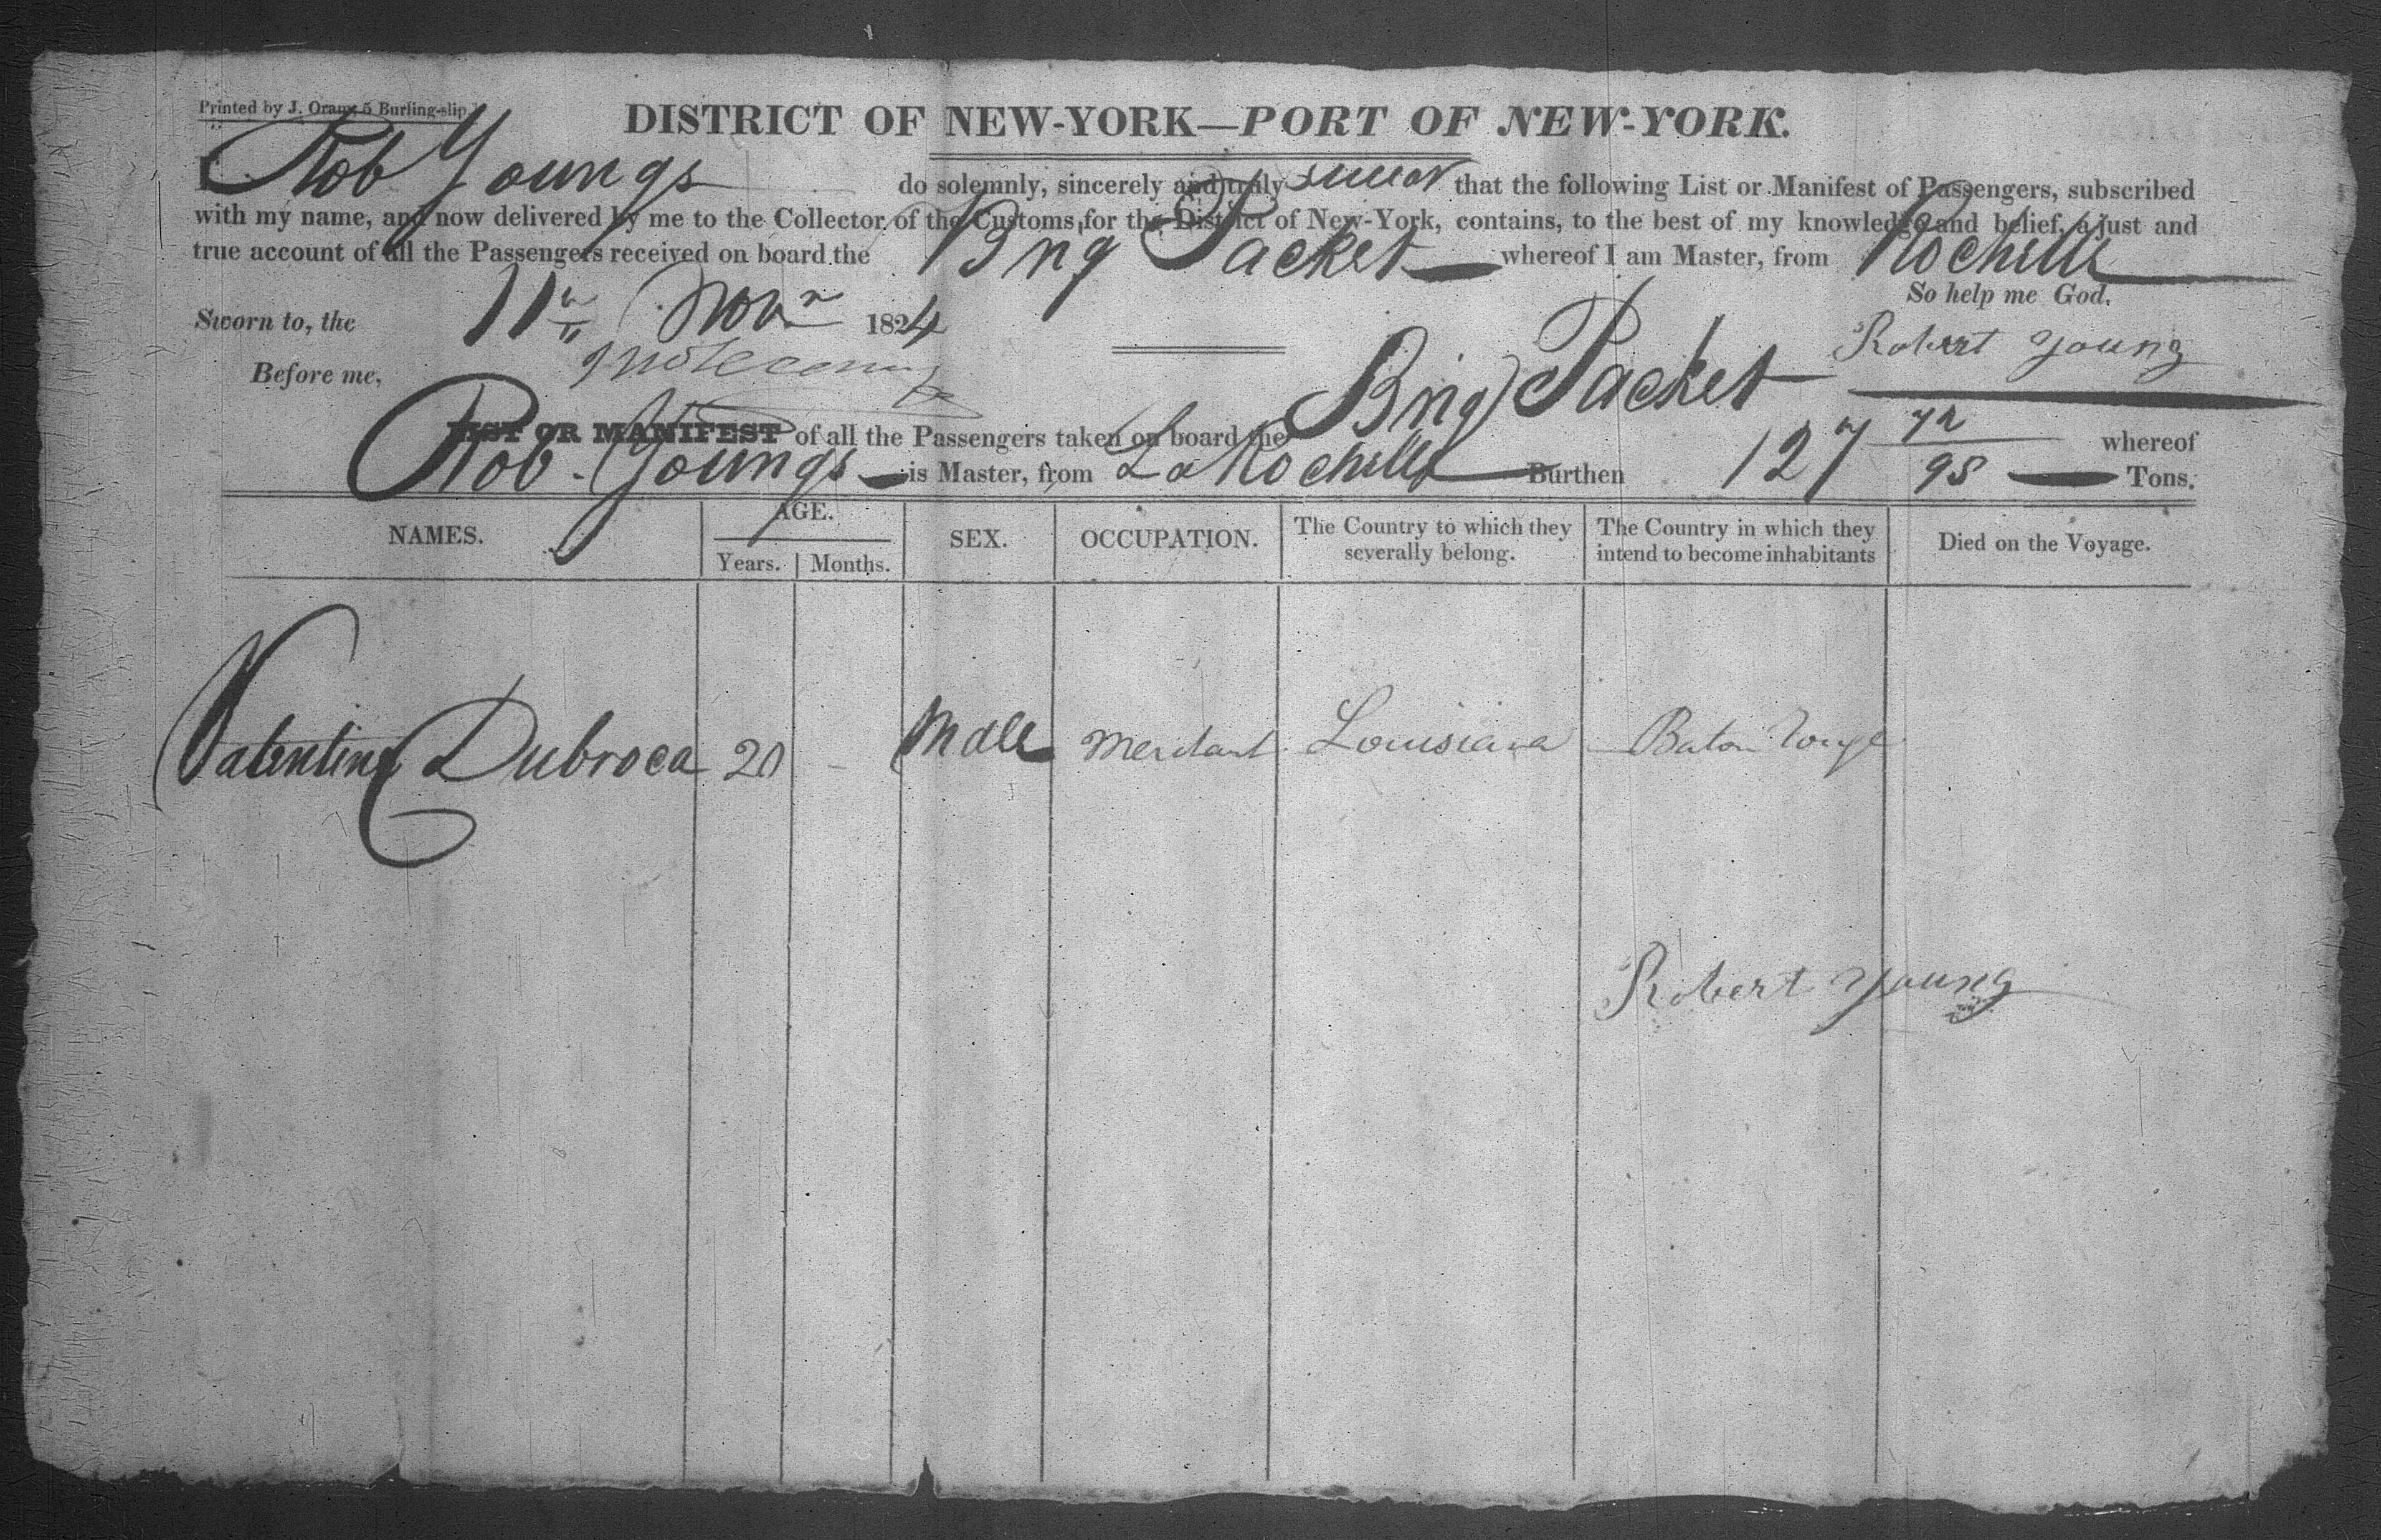 Printed by J. Oram, 5 Burling-slip
DISTRICT OF NEW-YORK—PORT OF NEW-YORK.
I, Rob Youngs do solemnly, sincerely and truly swear that the following List or Manifest of Passengers, subscribed
with my name, and now delivered by me to the Collector of the Customs, for the District of New-York, contains, to the best of my knowledge and belief, a just and
true account of all the Passengers received on board the Brig Packet whereof I am Master, from Rochille
So help me God.
Sworn to, the 11th Novr 1824
Robert Young
Before me,
LIST OR MANIFEST of all the Passengers taken on board the Brig Packet whereof
Rob. Youngs is Master, from La Rochille Burthen 127 72/95 Tons.
NAMES. AGE. SEX. OCCUPATION. The Country to which they severally belong. The Country in which they intend to become inhabitants Died on the Voyage.
Years. Months.
Valentine Dubroca 20 - Male Merchant Louisiana Baton Rouge
Robert Young